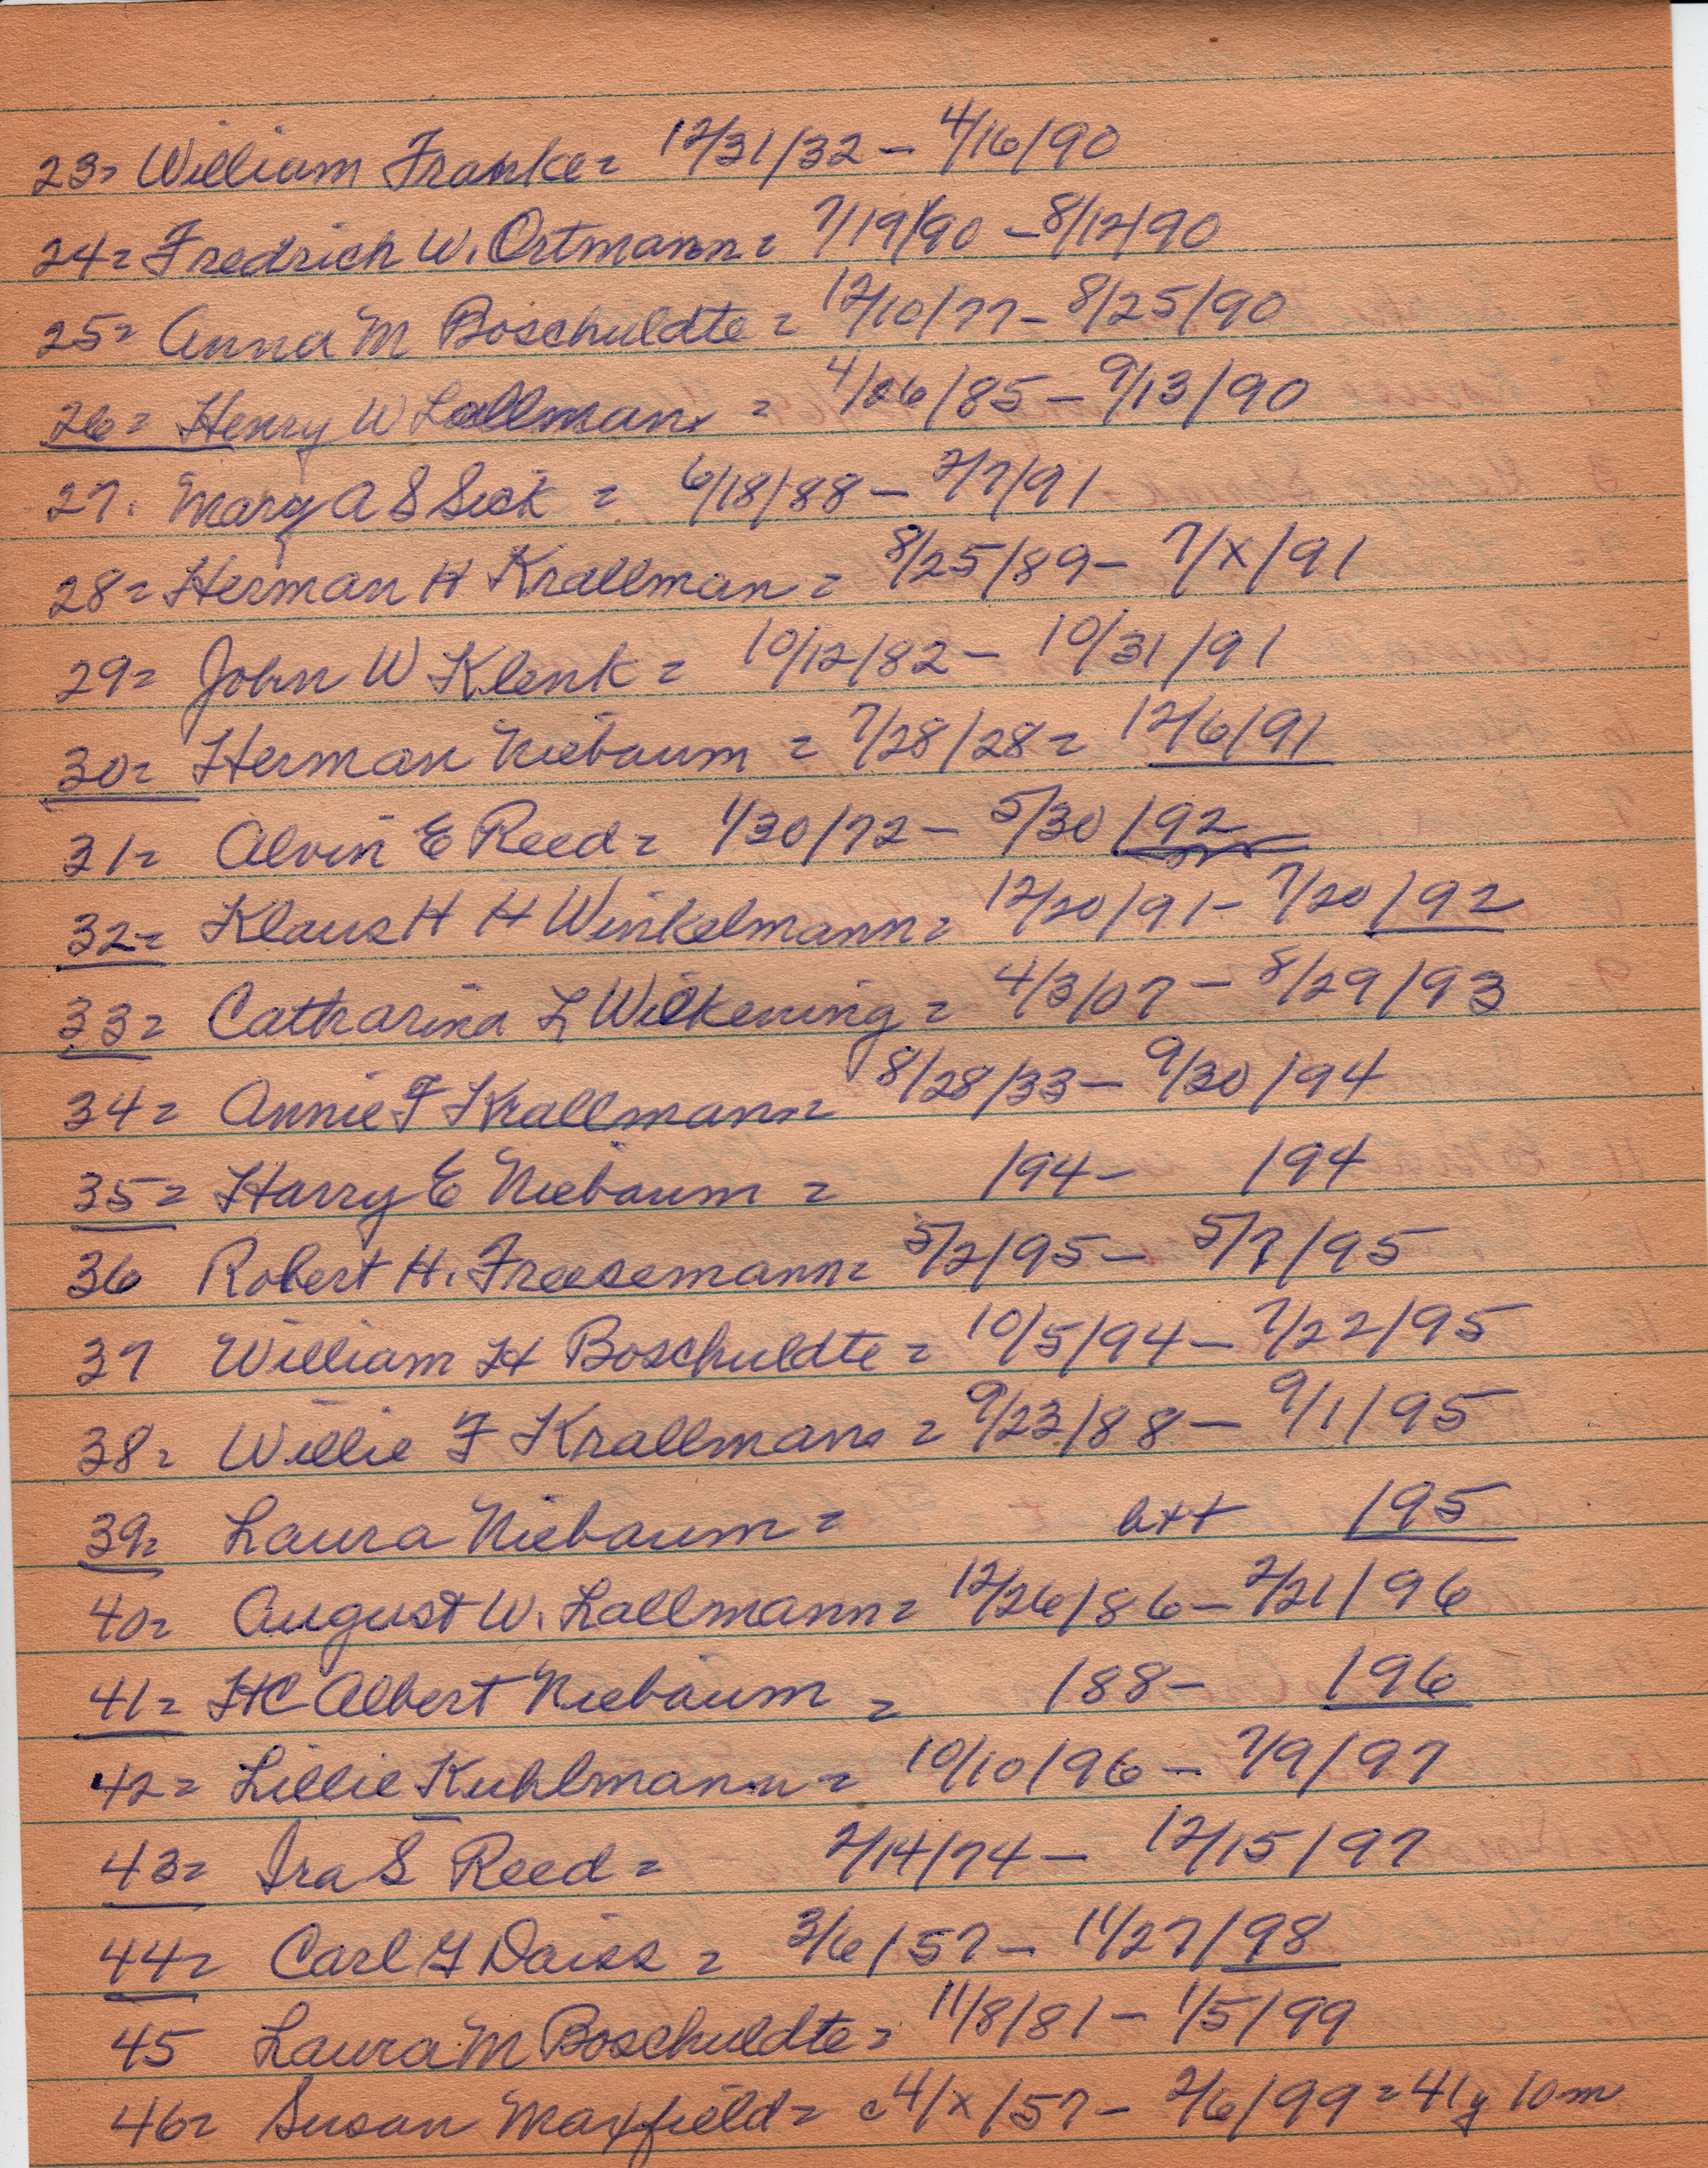 23= William Franke= 12/31/32 - 4/16/90
24= Fredrich W. Ortmann= 7/19/90 - 8/12/90
25= Anna M Boschuldte= 12/10/77 - 8/25/90
26= Henry W Lallmann = 4/26/85 - 9/13/90
27. Mary A S Sick = 6/18/88 - 2/7/91
28= Herman H Krallman= 8/25/89 - 7/x/91
29= John W Klenk= 10/12/82 - 10/31/91
30= Herman Niebaum = 7/28/28= 12/6/91
31= Alvin E Reed= 1/30/72 - 5/30/92
32= Klaus H H Winkelmann= 12/20/91 - 7/20/92
33= Catharina L Wilkening= 4/3/07 - 8/29/93
34= Annie F Krallmann= 8/28/33 - 9/30/94
35= Harry E Niebaum = /94 - /94
36 Robert H. Freesemann= 5/2/95 - 5/7/95
37 William H Boschuldte= 10/5/94 - 7/22/95
38= Willie F Krallmann = 9/23/88 - 9/1/95
39= Laura Niebaum= /95
40= August W. Lallmann= 12/26/86 - 2/21/96
41= HC Albert Niebaum = /88 - /96
42= Lillie Kuhlmann= 10/10/96 - 7/9/97
43= Ira S Reed= 2/14/74 - 12/15/97
44= Carl G Daiss = 3/6/57 - 11/27/98
45 Laura M Boschuldte= 11/8/81 - 1/5/99
46= Susan Maxfield= c4/x/57 - 2/6/99=41y 10m